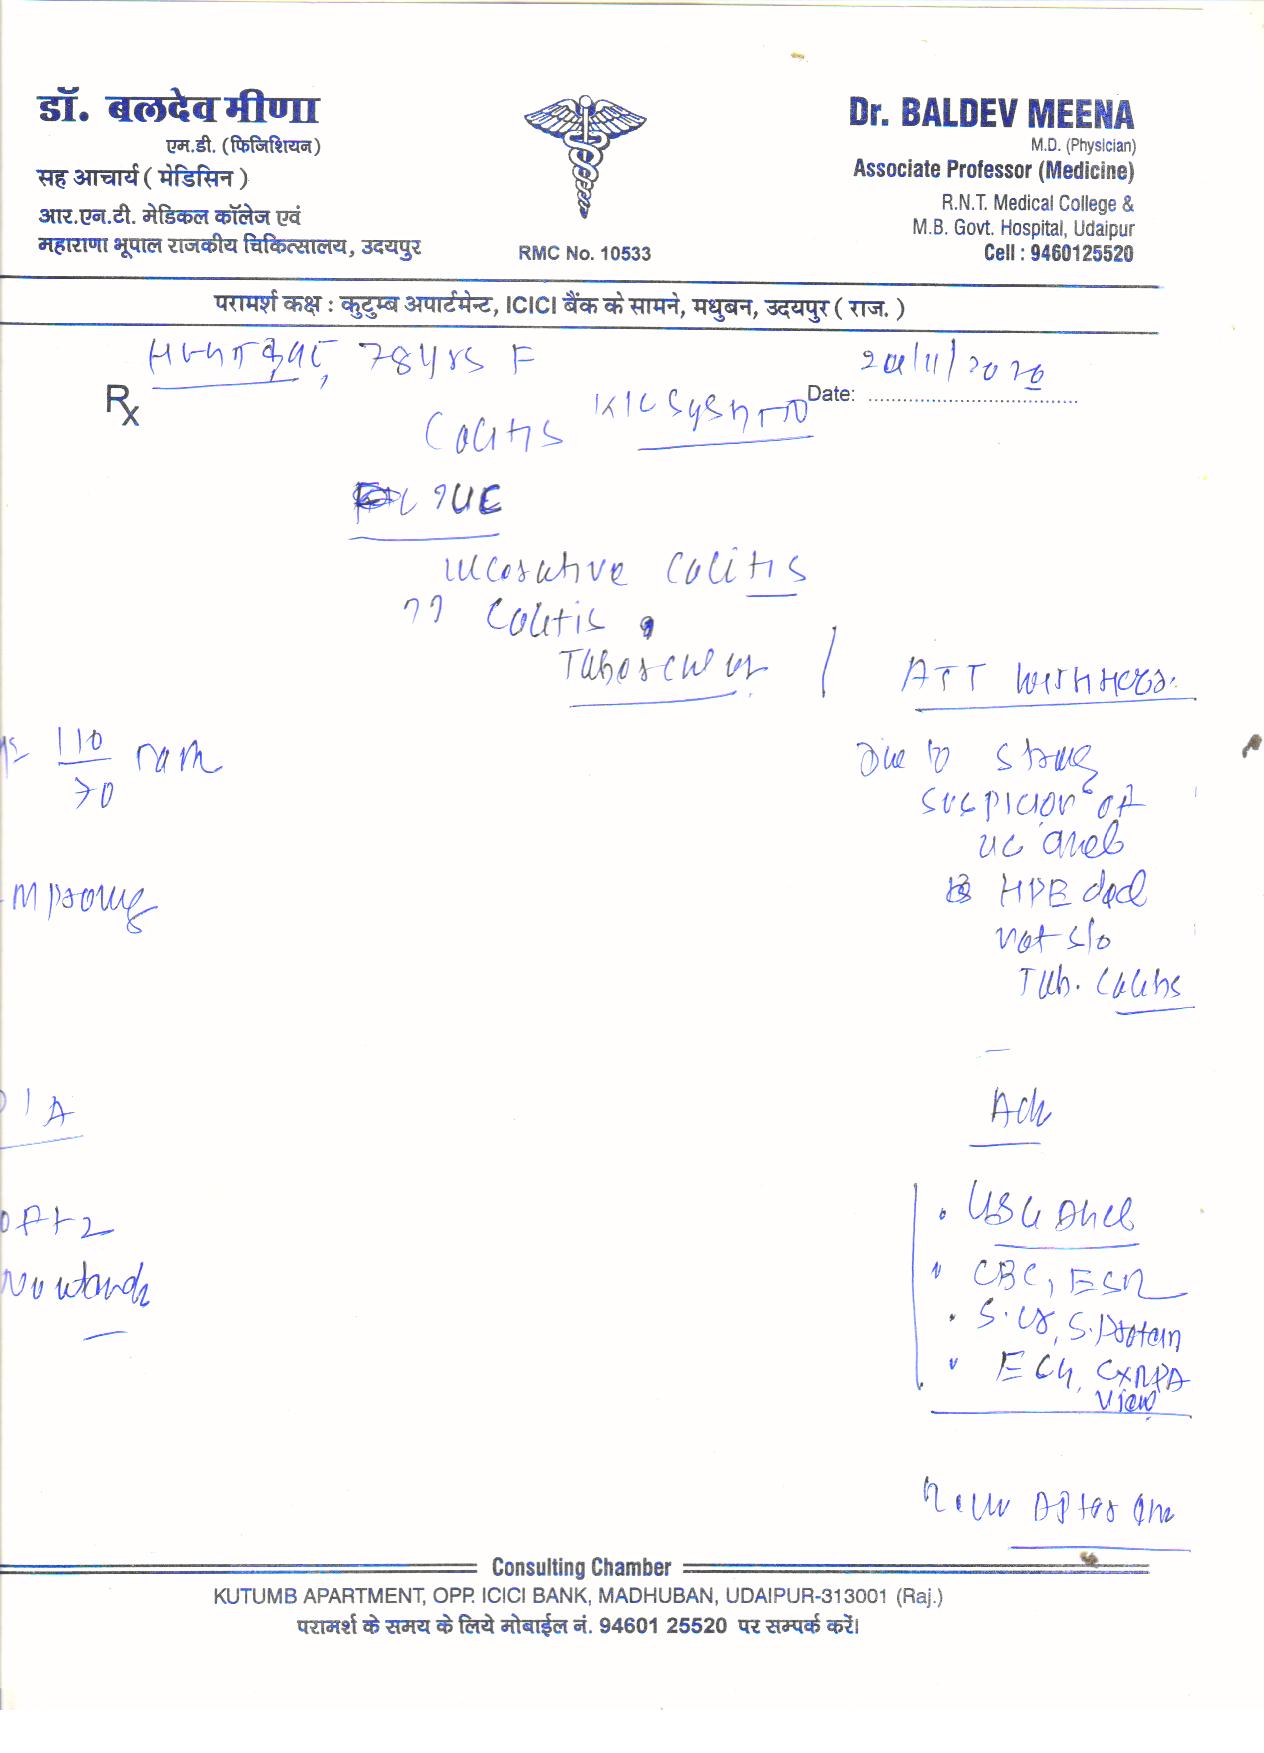 डॉ. बलदेव मीणा
एम.डी. (फिजिशियन)
सह आचार्य ( मेडिसिन )
आर.एन.टी. मेडिकल कॉलेज एवं
महाराणा भूपाल राजकीय चिकित्सालय, उदयपुर
RMC No. 10533
Dr. BALDEV MEENA
M.D. (Physician)
Associate Professor (Medicine)
R.N.T. Medical College &
M.B. Govt. Hospital, Udaipur
Cell : 9460125520
परामर्श कक्ष : कुटुम्ब अपार्टमेन्ट, ICICI बैंक के सामने, मधुबन, उदयपुर ( राज. )
78 yrs F
Rx
Date: ....................................
Colitis
? UC
ulcerative colitis
?? Colitis
Tubercular
ATT
110
70
Due to strong
suspicion of
UC and
HPE
not s/o
Tub. Colitis
Adv
USG
CBC, ESR
S. Protein
ECG, CXR PA
view
Consulting Chamber
KUTUMB APARTMENT, OPP. ICICI BANK, MADHUBAN, UDAIPUR-313001 (Raj.)
परामर्श के समय के लिये मोबाईल नं. 94601 25520 पर सम्पर्क करें।